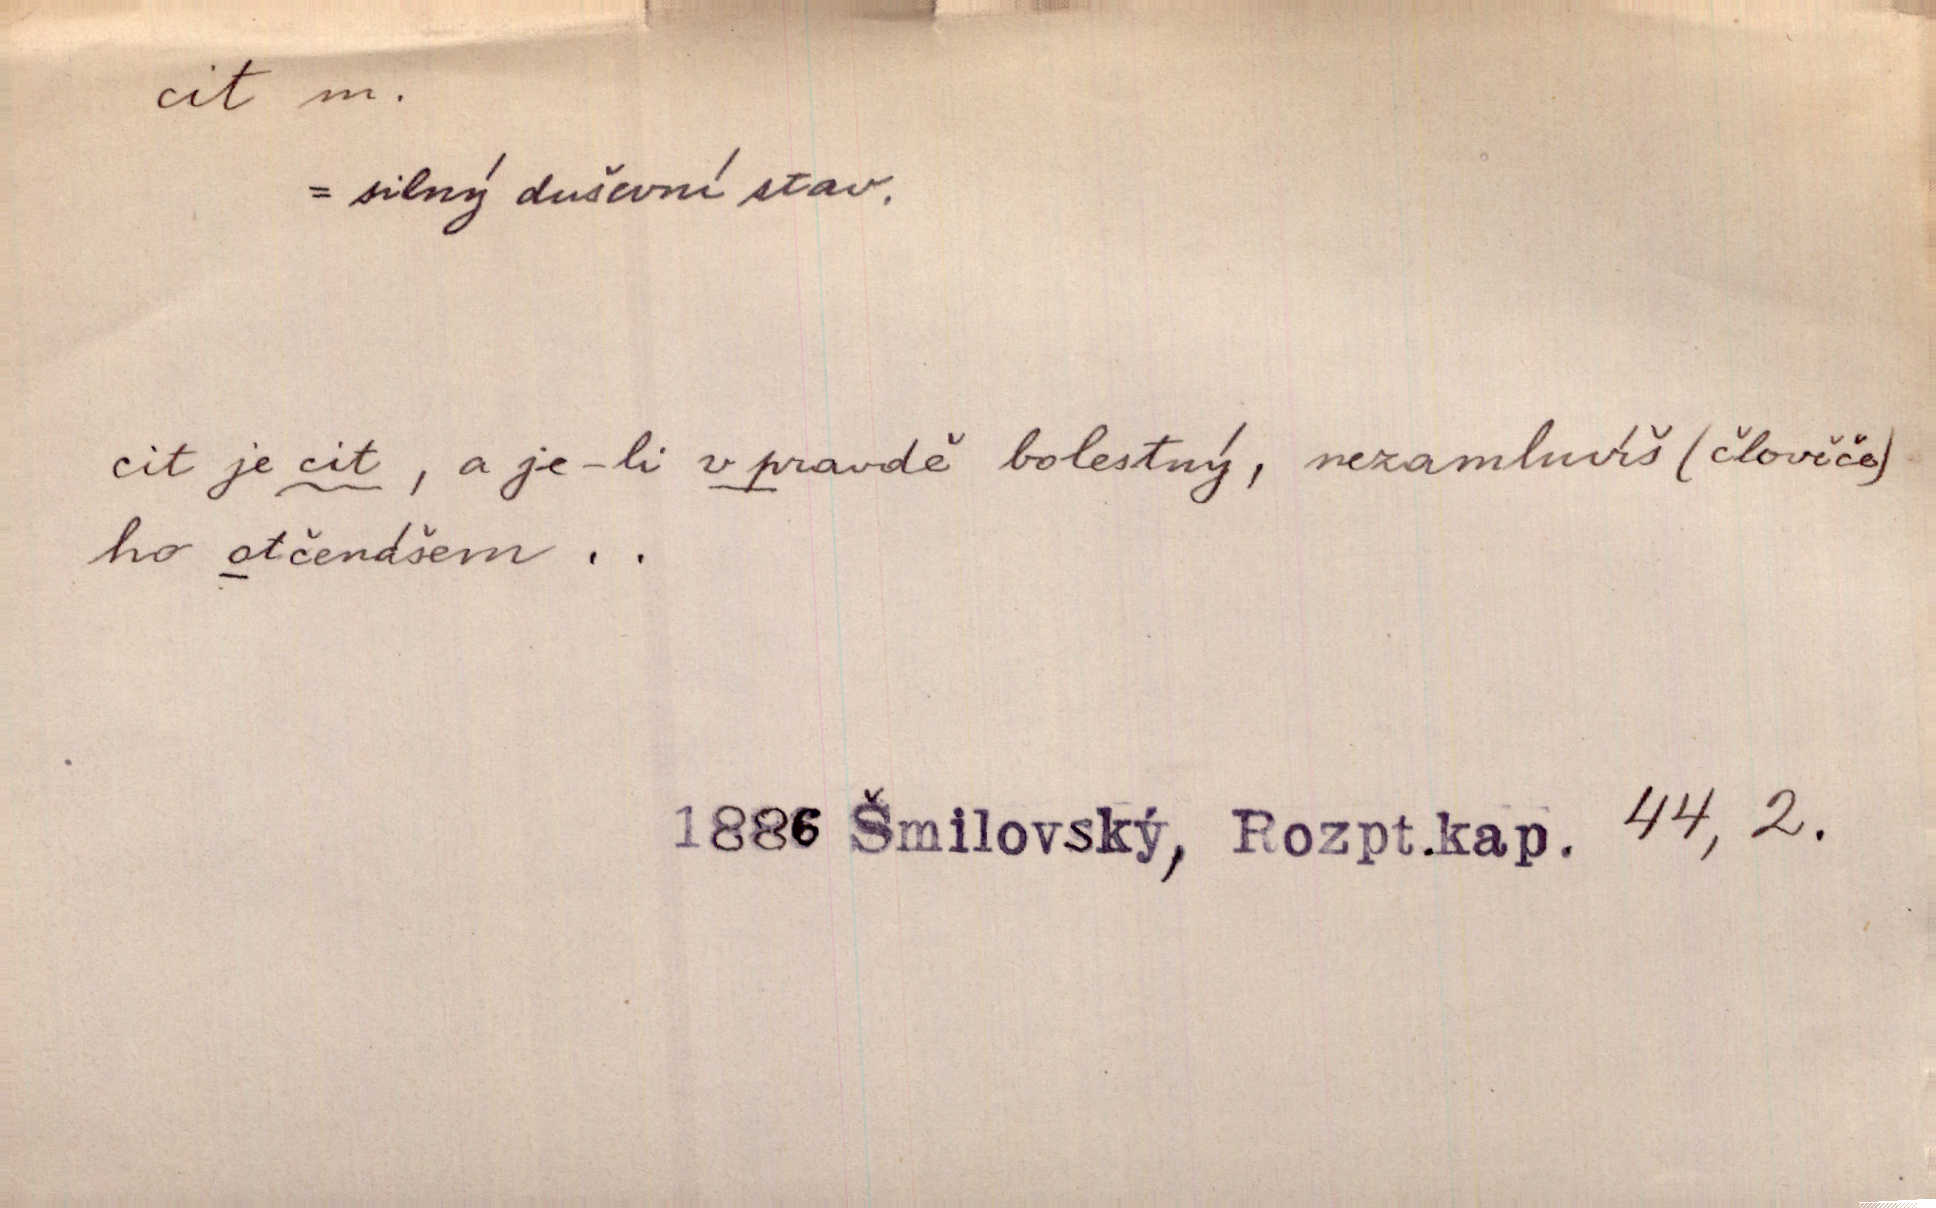 cit m.
= silný duševní stav.
cit je cit, a je-li v pravdě bolestný, nezamluvíš (člověče)
ho otčenášem . .
1886 Šmilovský, Rozpt.kap. 44, 2.